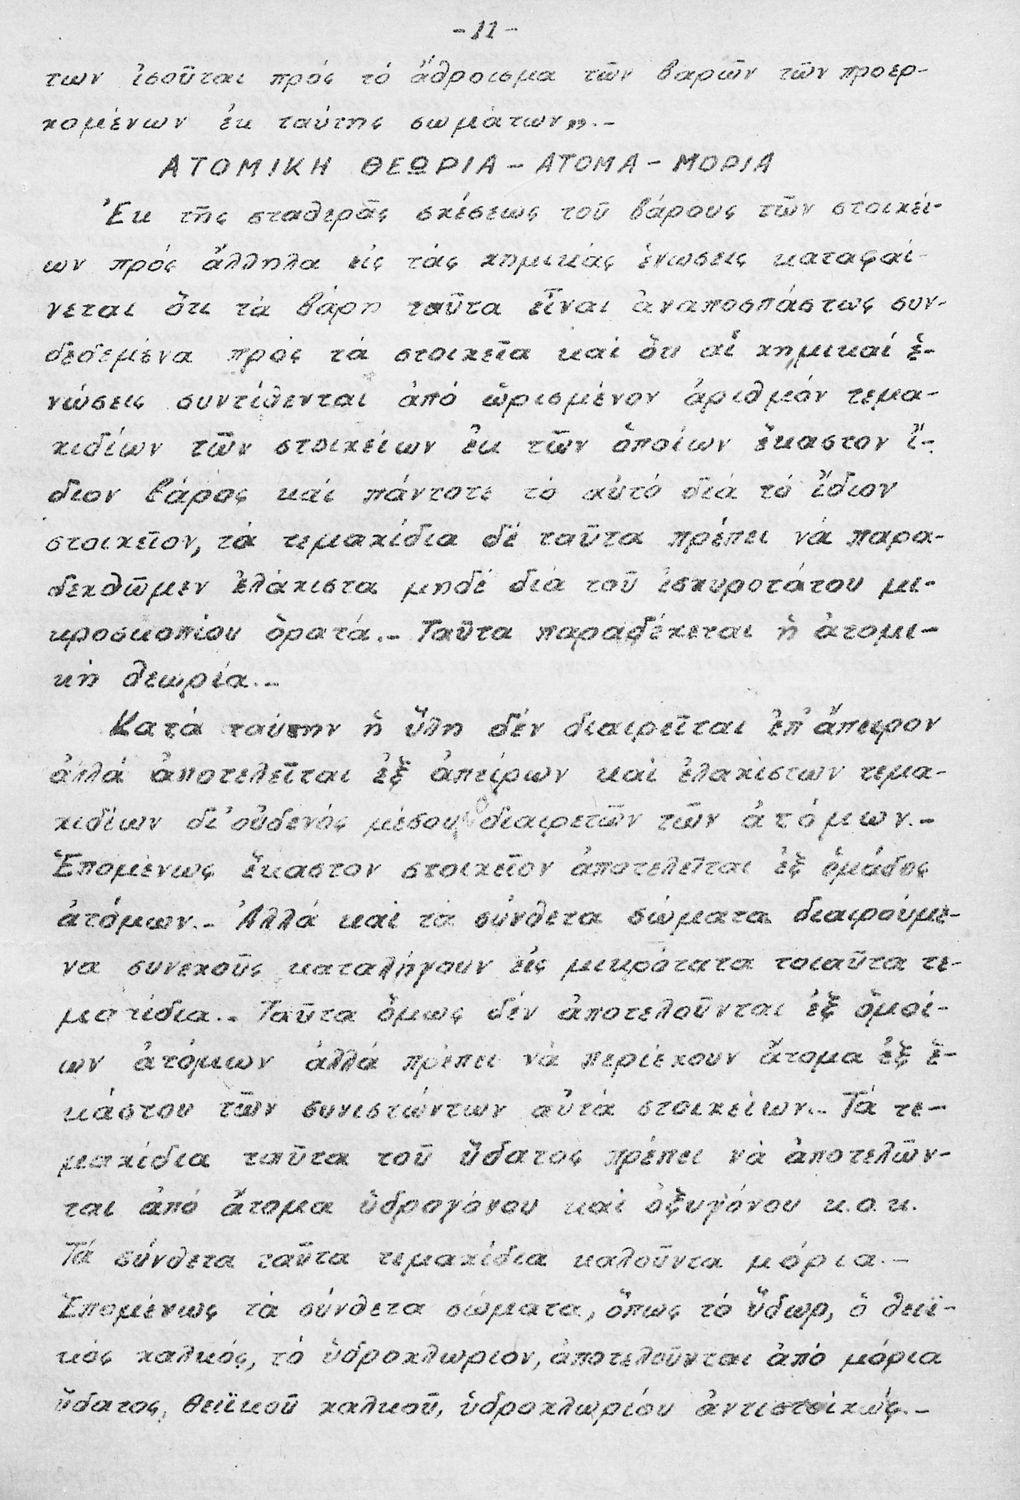 -11-
των ἰσοῦται πρός τό ἄθροισμα τῶν βαρῶν τῶν προερ-
χομένων ἐκ ταύτης σωμάτων».-
ΑΤΟΜΙΚΗ ΘΕΩΡΙΑ - ΑΤΟΜΑ - ΜΟΡΙΑ
Ἐκ τῆς σταθερᾶς σχέσεως τοῦ βάρους τῶν στοιχεί-
ων πρός ἄλληλα εἰς τάς χημικάς ἑνώσεις καταφαί-
νεται ὅτι τά βάρη ταῦτα εἶναι ἀναποσπάστως συν-
δεδεμένα πρός τά στοιχεῖα καί ὅτι αἱ χημικαί ἑ-
νώσεις συντίθενται ἀπό ὡρισμένον ἀριθμόν τεμα-
χιδίων τῶν στοιχείων ἐκ τῶν ὁποίων ἕκαστον ἴ-
διον βάρος καί πάντοτε τό αὐτό διά τό ἴδιον
στοιχεῖον, τά τεμαχίδια δέ ταῦτα πρέπει νά παρα-
δεχθῶμεν ἐλάχιστα μηδέ διά τοῦ ἰσχυροτάτου μι-
κροσκοπίου ὁρατά.- Ταῦτα παραδέχεται ἡ ἀτομι-
κή θεωρία.-
Κατά ταύτην ἡ ὕλη δέν διαιρεῖται ἐπ' ἄπειρον
ἀλλά ἀποτελεῖται ἐξ ἀπείρων καί ἐλαχίστων τεμα-
χιδίων δι' οὐδενός μέσου διαιρετῶν τῶν ἀτόμων.-
Ἑπομένως ἕκαστον στοιχεῖον ἀποτελεῖται ἐξ ὁμάδος
ἀτόμων.- Ἀλλά καί τά σύνθετα σώματα διαιρούμε-
να συνεχοῦς καταλήγουν εἰς μικρότατα τοιαῦτα τε-
μαχίδια.- Ταῦτα ὅμως δέν ἀποτελοῦνται ἐξ ὁμοί-
ων ἀτόμων ἀλλά πρέπει νά περιέχουν ἄτομα ἐξ ἑ-
κάστου τῶν συνιστώντων αὐτά στοιχείων.- Τά τε-
μαχίδια ταῦτα τοῦ ὕδατος πρέπει νά ἀποτελῶν-
ται ἀπό ἄτομα ὑδρογόνου καί ὀξυγόνου κ.ο.κ.
Τά σύνθετα ταῦτα τεμαχίδια καλοῦντα μόρια.-
Ἑπομένως τά σύνθετα σώματα, ὅπως τό ὕδωρ, ὁ θειϊ-
κός χαλκός, τό ὑδροχλωριον, ἀποτελοῦνται ἀπό μόρια
ὕδατος, θειϊκοῦ χαλκοῦ, ὑδροχλωρίου ἀντιστοίχως.-